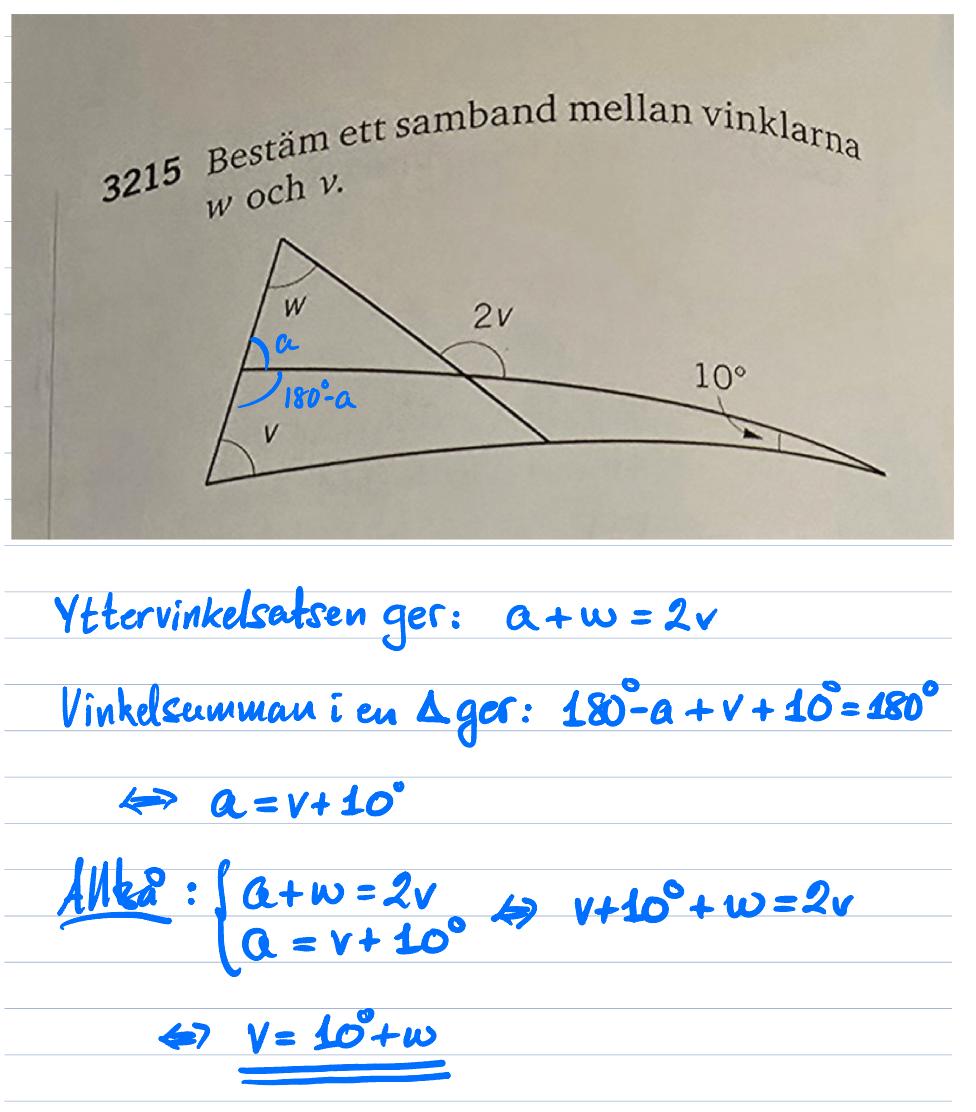 3215 Bestäm ett samband mellan vinklarna
w och v.
w
2v
a
10°
180°-a
v
Yttervinkelsatsen ger: a+w=2v
Vinkelsumman i en Δ ger: 180°-a+v+10°=180°
⇔ a=v+10°
Alltså: { a+w=2v ⇔ v+10°+w=2v
a = v+10°
⇔ v= 10°+w